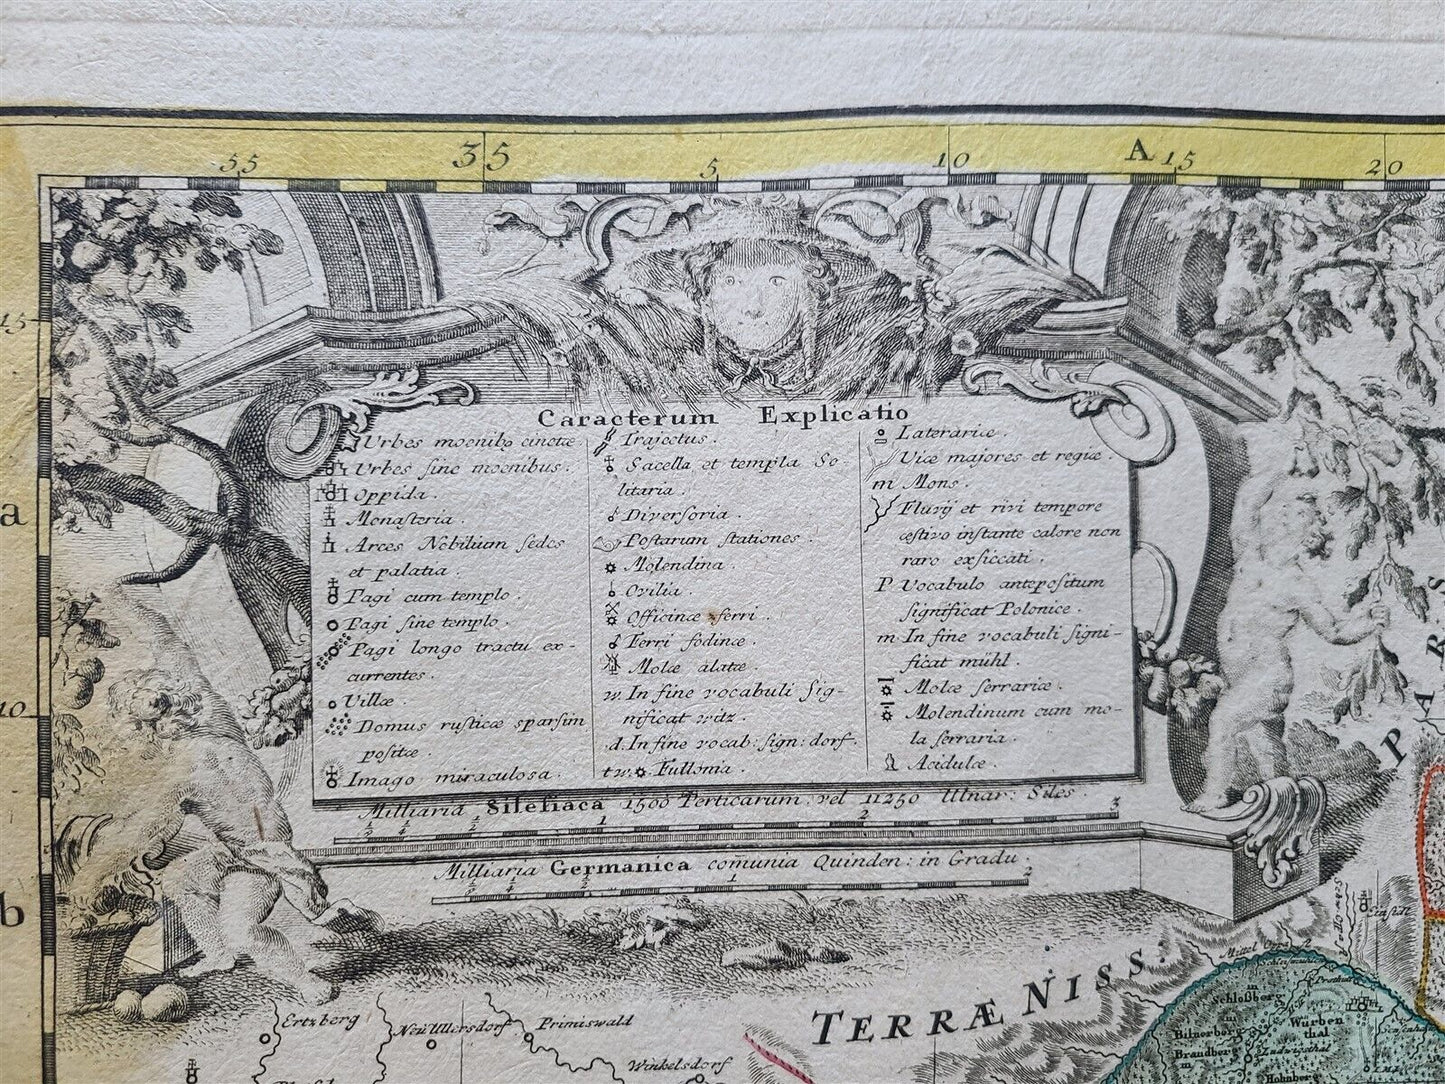 55 35 5 10 A 15 20
15
a
10
b
Caracterum Explicatio
Urbes moenibq cinctæ
Urbes sine moenibus.
Oppida.
Monasteria.
Arces Nobilium sedes
et palatia.
Pagi cum templo.
Pagi sine templo.
Pagi longo tractu ex-
currentes.
Villæ.
Domus rusticæ sparsim
positæ.
Imago miraculosa.
Trajectus.
Sacella et templa So-
litaria.
Diversoria.
Postarum stationes.
Molendina.
Ovilia.
Officinæ ferri.
Ferri fodinæ.
Molæ alatæ.
w. In fine vocabuli sig-
nificat witz.
d. In fine vocab: sign: dorf.
t w. Fullonia.
Laterariæ.
Viæ majores et regiæ.
m Mons.
Fluvij et rivi tempore
æstivo instante calore non
raro exsiccati.
P Vocabulo antepositum
significat Polonice.
m In fine vocabuli signi-
ficat mühl.
Molæ serrariæ.
Molendinum cum mo-
la serraria.
Acidulæ.
Milliaria Silesiaca 1500 Perticarum. vel 11250 Ulnar: Siles.
1 2 3
Milliaria Germanica com̄unia Quinden: in Gradu.
1 2
PARS
TERRÆ NISS.
Ertzberg
Neu Ullersdorf
Primiswald
Winkelsdorf
Einsidl
Schloßberg
Bilnerberg
Würben
thal
Brandberg
m
Ludwigsthal
Hohnberg